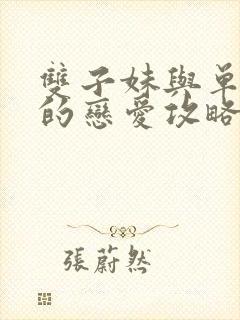 雙子妹與單
的戀愛攻略
張蔚然